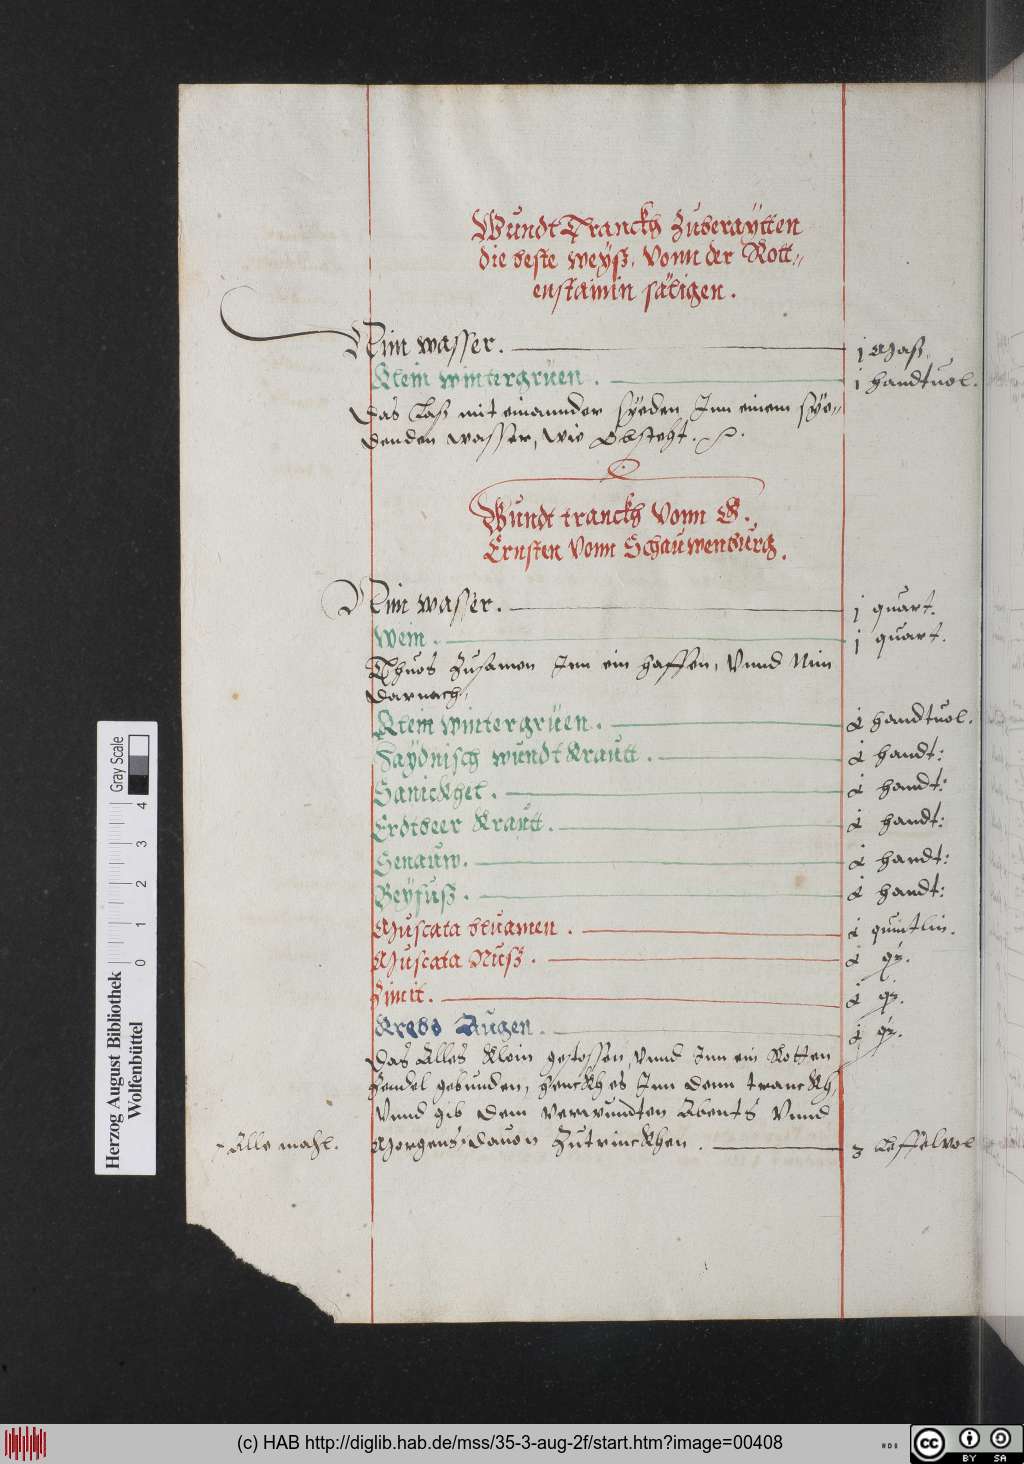 Wundt Tranckh Zuberaÿtten
die beste weÿß, Vonn der Rott-,,
enstainin säligen.
Nim wasser. j Maß.
Klein wintergrüen. j handtuol.
Das Laß mit einannder syeden Inn einem sye-,,
denden wasser, wie Obsteht.
Wundt tranckh Vonn G.
Ernsten Vonn Schauwenburg.
Nim wasser. j quart.
Wein. j quart.
Thuos Zusamen Inn ein haffen, Vnnd Nim
darnach,
Klein wintergrüen. handtuol.
Haÿdnisch wundt Krautt. handt:
Sanickhel. handt:
Erdtbeer Krautt. handt:
Senauw. handt:
Beÿfuß. handt:
Muscata bluamen. quintlin.
Muscata Nuß. q.
Zimit. q.
Krebs Augen. q.
Das Alles Klein gestossen, Vnnd Inn ein Rotten
Zendel gebunden, henckh es Inn denn tranckh,
Vnnd gib dem verwundten Abents Vnnd
Alle mahl. Morgens dauon Zutrinckhen. 3 Leffelvol
Herzog August Bibliothek
Wolfenbüttel
0 1 2 3 4
Gray Scale
(c) HAB http://diglib.hab.de/mss/35-3-aug-2f/start.htm?image=00408
cc BY SA